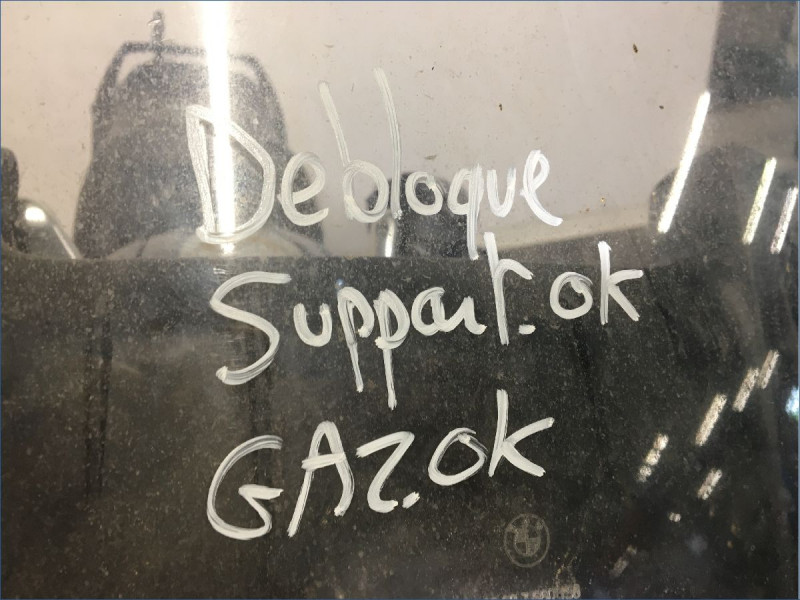 Debloque
Support.ok
GAz.ok